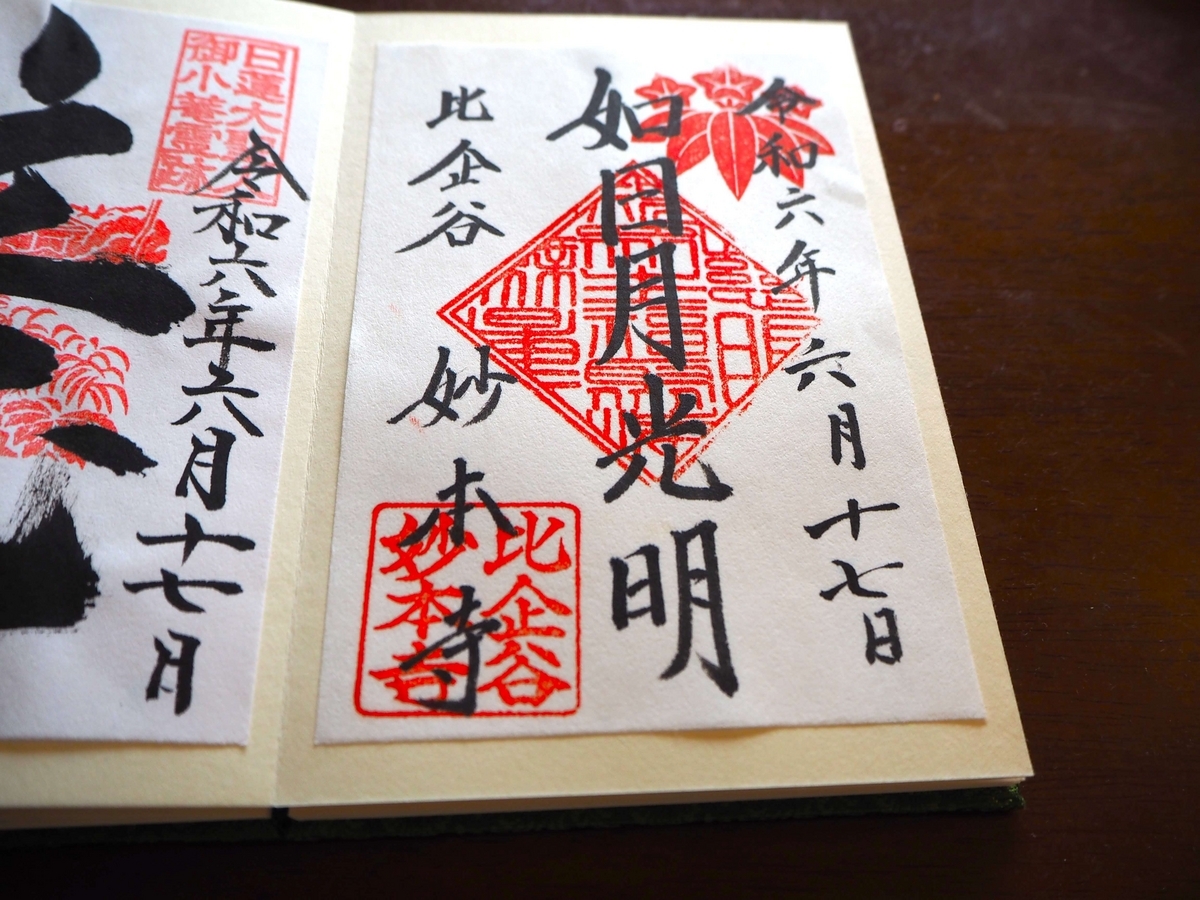 令和六年六月十七日
如日月光明
比企谷
妙本寺
比企谷
妙本寺
令和六年六月十七月
日蓮大聖人
御小菴霊跡